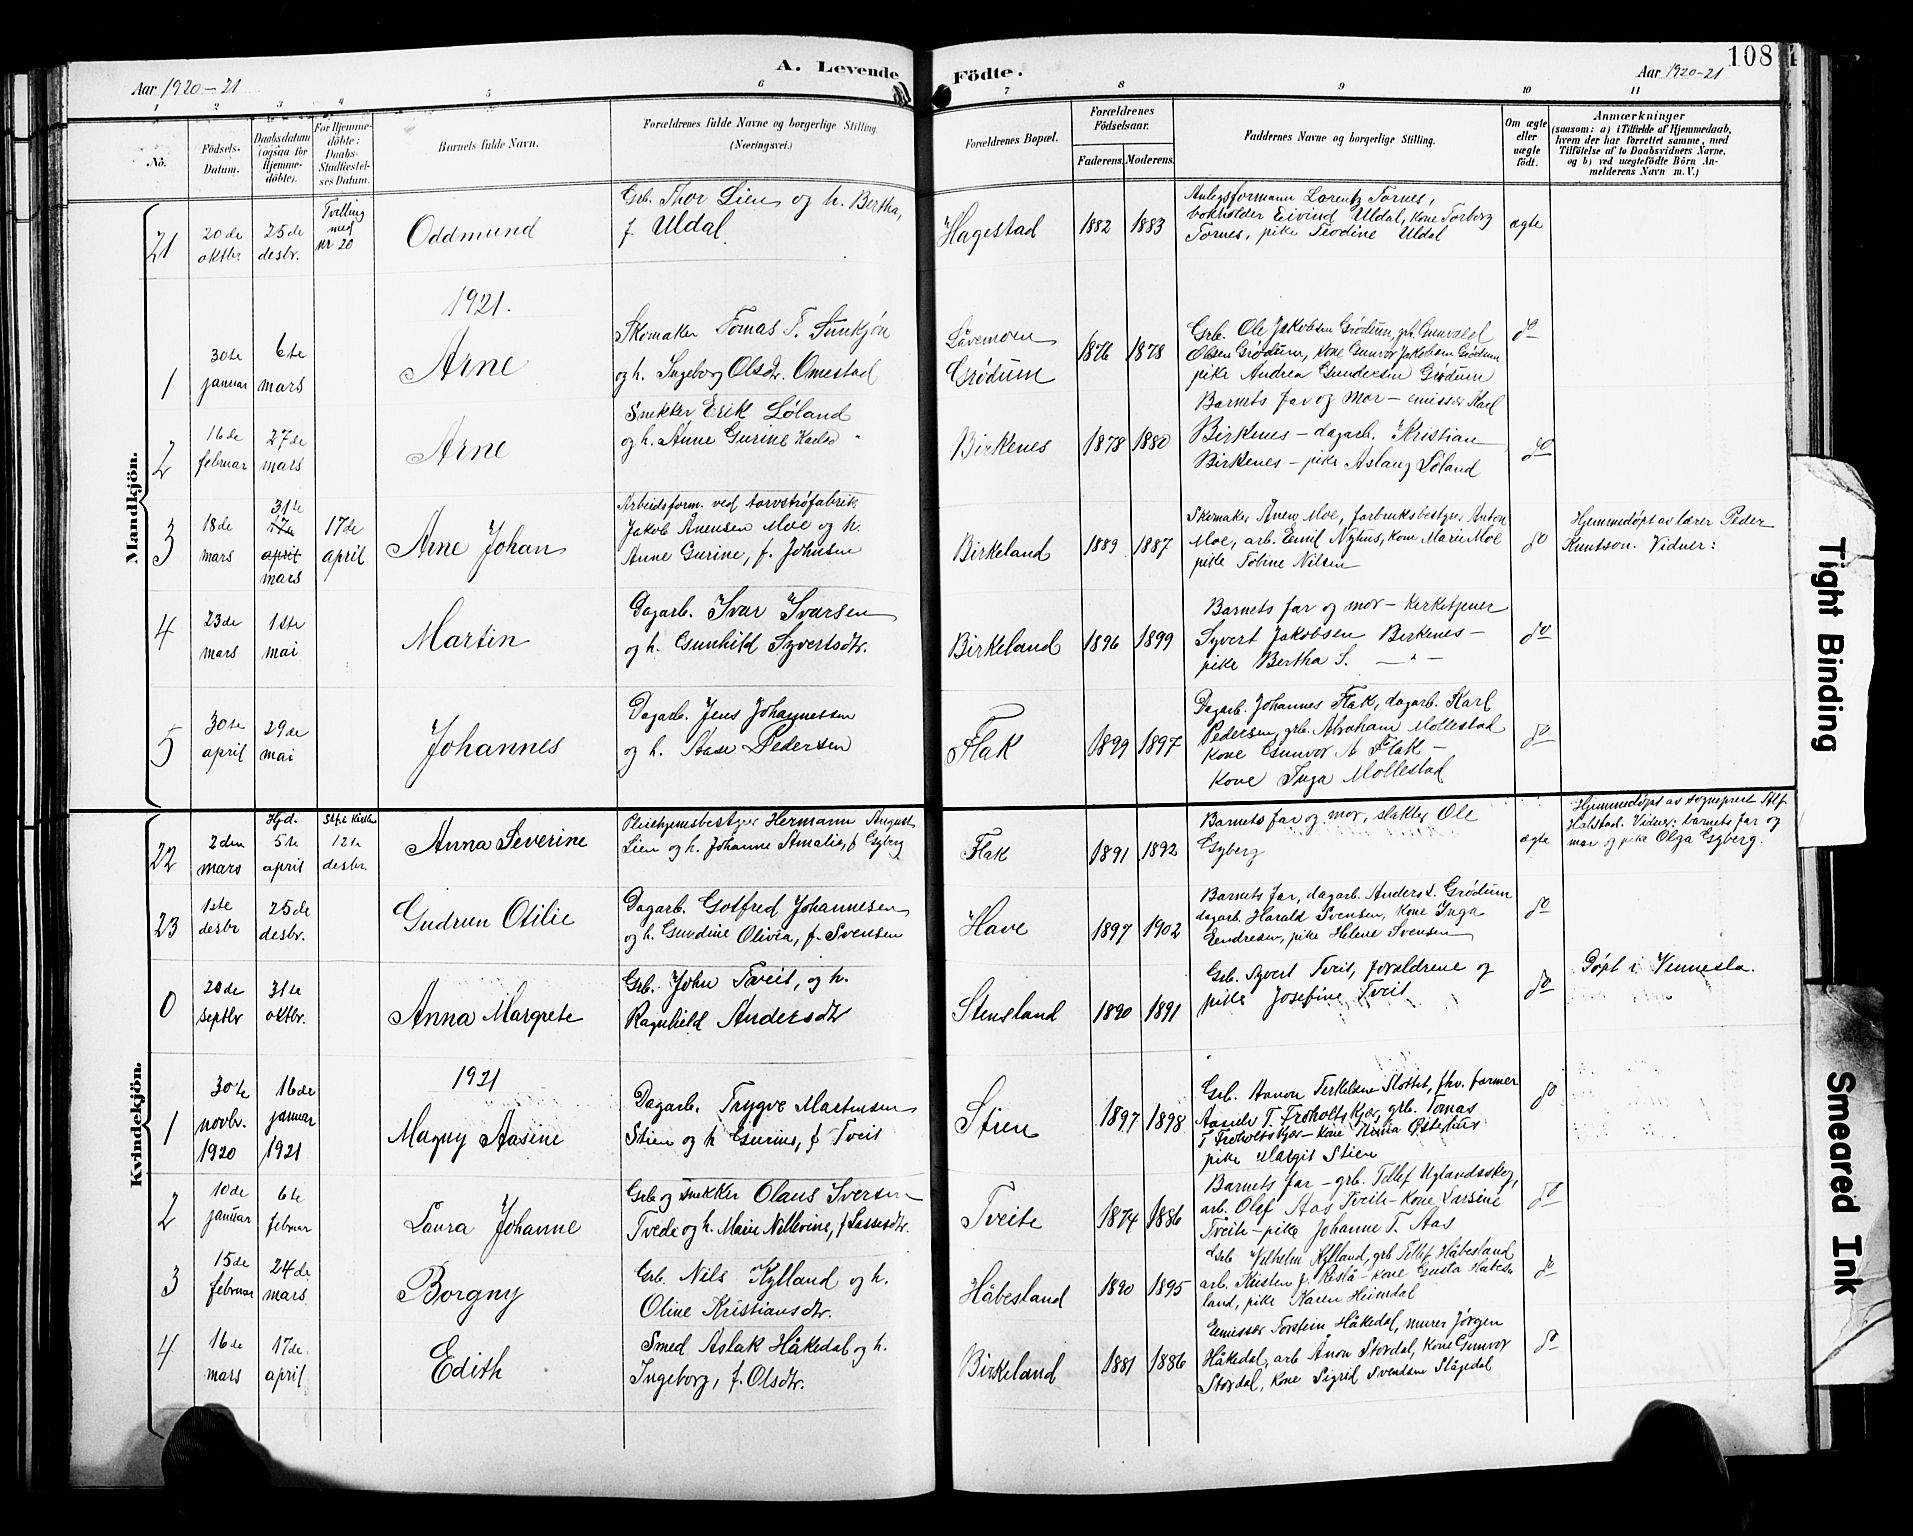 Aar 1920-21
A. Levende Födte.
Aar 1920-21
108
1 2 3 4 5 6 7 8 9 10 11
No.
Födsels-
Datum.
Daabsdatum
(ogsaa for
Hjemme-
döbte).
For Hjemme-
döbte:
Daabs-
Stadfæstel-
ses Datum.
Barnets fulde Navn.
Forældrenes fulde Navne og borgerlige Stilling.
(Næringsvei.)
Forældrenes Bopæl.
Forældrenes
Födselsaar.
Faderens. Moderens.
Faddernes Navne og borgerlige Stilling.
Om ægte
eller
uægte
födt.
Anmærkninger
(saasom: a) i Tilfælde af Hjemmedaab,
hvem der har forrettet samme, med
Tilföielse af to Daabsvidners Navne.
og b) ved uægtefödte Börn An-
melderens Navn m. V.)
Mandkjön.
21
20de
oktbr
25de
desbr.
Tvilling
med
nr 20
Oddmund
Grb. Thor Lien og h. Bertha,
f. Uldal.
Hagestad
1882 1883
Anlegsformann Lorentz Tornes,
bokholder Eivind Uldal, kone Torborg
Tornes, pike Teodine Uldal
ægte
1921.
1
30te
januar
6te
mars
Arne
Skomaker Tomas T.
og h. Ingeborg Olsdtr. Omestad
Løvemoen
Grødum
1876 1878
Grb. Ole Jakobsen Grødum, grb. Gunvald
Olsen Grødum, kone Gunvor Jakobsen Grødum
pike Andrea Gundersen Grødum
do
2
16de
februar
27de
mars
Arne
Snekker Erik Løland
og h. Anne Gurine Karlsd "
Birkenes
1878 1880
Barnets far og mor – emissær Karl
Birkenes – dagarb. Kristian
Birkenes – pike Aslaug Løland
do
3
18de
mars
31te
17de
april
mars
17de
april
Arne Johan
Arbeidsform. ved torvstrøfabrik
Jakob Ånensen Moe og h.
Anne Gurine, f. Johnsen
Birkeland
1889 1887
Skomaker Ånen Moe, forbruksbestyrer Anton
Moe, arb. Emil Nyhus, kone Marie Moe
pike Tobine Nilsen
do
Hjemmedøpt av lærer Peder
Knutson. Vidner:
4
23de
mars
1ste
mai
Martin
Dagarb. Ivar Ivarsen
og h. Gunhild Syvertsdtr.
Birkeland
1896 1899
Barnets far og mor – kirketjener
Syvert Jakobsen Birkenes –
pike Bertha S. — " —
do
5
30te
april
29de
mai
Johannes
Dagarb. Jens Johannessen
og h. Stase Pedersen
Flak
1899 1897
Dagarb. Johannes Flak, dagarb. Karl
Pedersen, grb. Abraham Mollestad
kone Gunvor A Flak –
kone Inga Mollestad
do
Kvindekjön.
22
2den
mars
Hjd.
5te
april
Stf. i Kirken
12te
desbr.
Anna Severine
Pleiehjemsbestyrer Hermann August
Lien og h. Johanne Amalie, f Gyberg
Flak
1891 1892
Barnets far og mor, slakter Ole
Gyberg
ægte
Hjemmedøpt av sogneprest Alf
Halstad. Vidner: barnets far og
mor og pike Olga Gyberg.
23
1ste
desbr
25de
desbr.
Gudrun Otilie
Dagarb. Gotfred Johannesen
og h. Gundine Olivia, f. Svensen
Have
1897 1902
Barnets far, dagarb. Anders L. Grødum
dagarb. Harald Svensen, kone Inga
Eendresen, pike Helene Svensen
do
0
20de
septbr
31te
oktbr.
Anna Margrete
Grb. John Tveit, og h.
Ragnhild Andersdtr
Stensland
1890 1891
Grb. Syvert Tveit, foreldrene og
pike Josefine Tveit
do
Døpt i Vennesla.
1921
1
30te
novbr.
1920
16de
januar
1921
Magny Aasine
Dagarb. Trygve Martinsen
Stien og h Gurine, f Tveit
Stien
1897 1898
Grb. Aanon Terkelsen Slottet, fhv. farmer
T. Froholtskjær, grb. Tomas
T Froholtskjær – kone
pike Margit Stien
do
2
10de
januar
6te
februar
Laura Johanne
Grb og snekker Olaus Iversen
Tvede og h. Marie Nillevine, f Lassesdtr.
Tveite
1874 1886
Barnets far – grb. Tellef Uglandsskog,
arb. Olef Aas Tveite – kone Larsine
Tveite – pike Johanne T. Aas
do
3
15de
februar
24de
mars.
Borgny
Grb. Nils Kylland og h.
Oline Kristiansdtr.
Håbesland
1890 1895
Grb Vilhelm Kylland, grb Tellef Håbesland
arb. Kristen f. Reslå – kone Gusta Håbes-
land, pike Karen Heimdal
do
4
16de
mars
17de
april
Edith
Smed Aslak Håkedal og h.
Ingeborg, f. Olsdtr.
Birkeland
1881 1886
Emissær Torstein Håkedal, murer Jørgen
Håkedal, arb Ånon Stordal, kone Gunvor
Stordal, kone Sigrid Svendsen Slågedal
do
Tight Binding
Smeared Ink